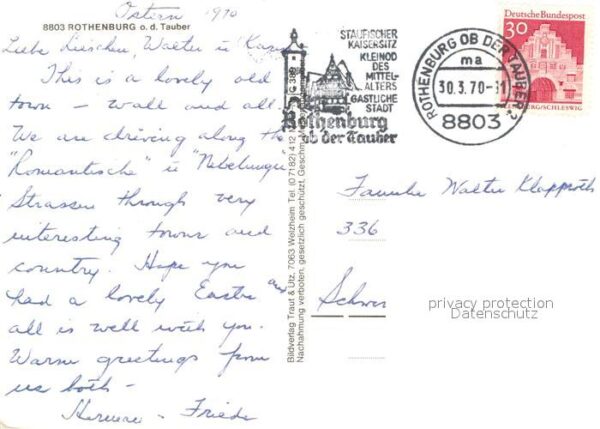 Ostern 1970
8803 ROTHENBURG o. d. Tauber
Liebe Lieschen, Walter u
This is a lovely old
town – wall and all.
We are driving along the
"Romantische" u "Nebelungen"
Strassen through very
interesting towns and
country. Hope you
had a lovely Easter and
all is well with you.
Warm greetings from
us both –
Frieda
STAUFISCHER
KAISERSITZ
KLEINOD
DES
MITTEL-
ALTERS
GASTLICHE
STADT
Rothenburg
ob der Tauber
ROTHENBURG OB DER TAUBER
ma
30.3.70-11
8803
DEUTSCHE BUNDESPOST
30
Bildverlag Traut & Utz, 7063 Welzheim Tel. (0 7182) 412
Nachmachung verboten, gesetzlich geschützt.
Familie Walter Klapproth
336
privacy protection
Datenschutz